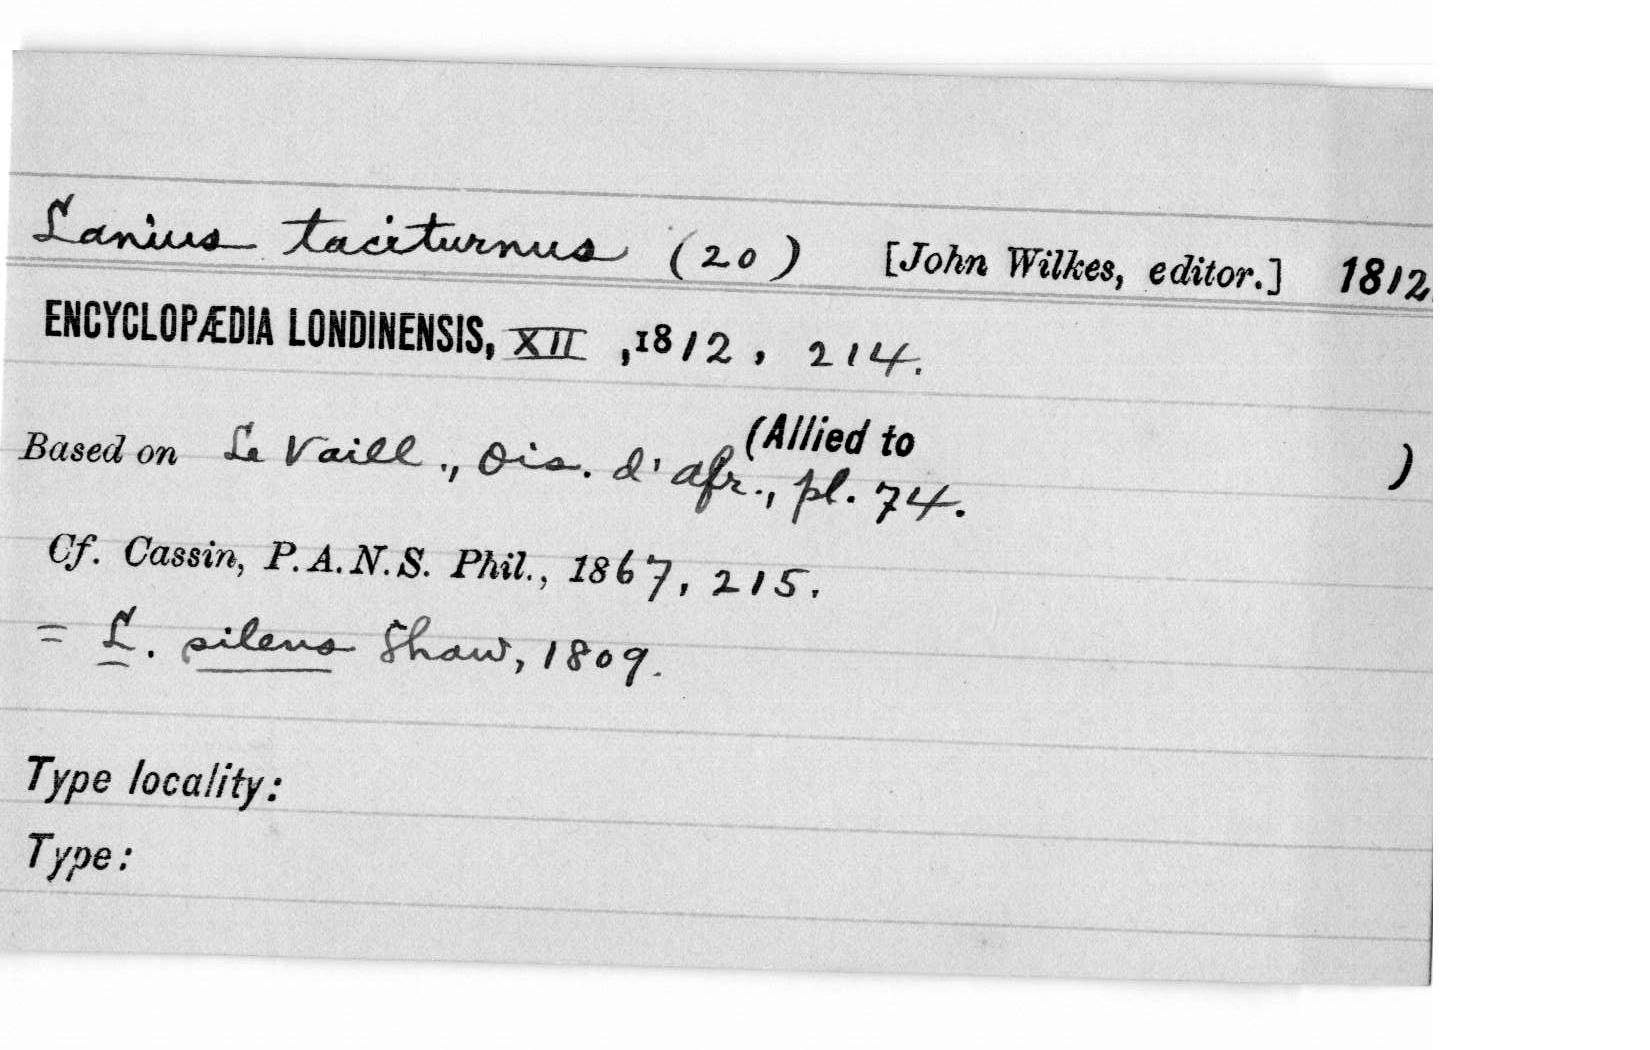 Lanius taciturnus (20) [John Wilkes, editor.] 1812
ENCYCLOPÆDIA LONDINENSIS, XII, 1812, 214.
(Allied to )
Based on Le Vaill., Ois. d'afr., pl. 74.
Cf. Cassin, P.A.N.S. Phil., 1867, 215.
= L. silens Shaw, 1809.
Type locality:
Type: